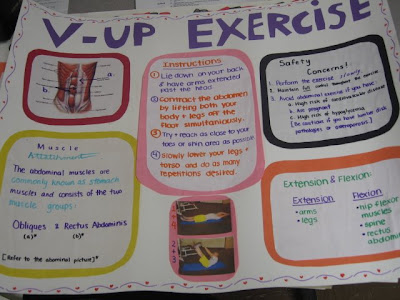 V-UP EXERCISE
a.
b.
Instructions
1 Lie down on your back
& have arms extended
past the head.
2 Contract the abdomen
by lifting both your
body + legs off the
floor simultaneously.
3 Try + reach as close to your
toes or shin area as possible
4 Slowly lower your legs +
torso and do as many
repetitions desired.
Safety
Concerns!
1. Perform the exercise slowly
2. Maintain full control throughout the exercise
3. Avoid abdominal exercise if you have:
a. High risk of cardiovascular disease
b. Are pregnant
c. High risk of
[Be cautious if you have lumbar disk
pathologies or osteoporosis]
Muscle
Attachment
The abdominal muscles are
commonly known as stomach
muscles and consists of the two
muscle groups:
Obliques & Rectus Abdominis
(a)* (b)*
[Refer to the abdominal picture]*
1 + 4
2 + 3
Extension & Flexion:
Extension
• arms
• legs
Flexion
• hip flexor
muscles
• spine
• rectus
abdomi